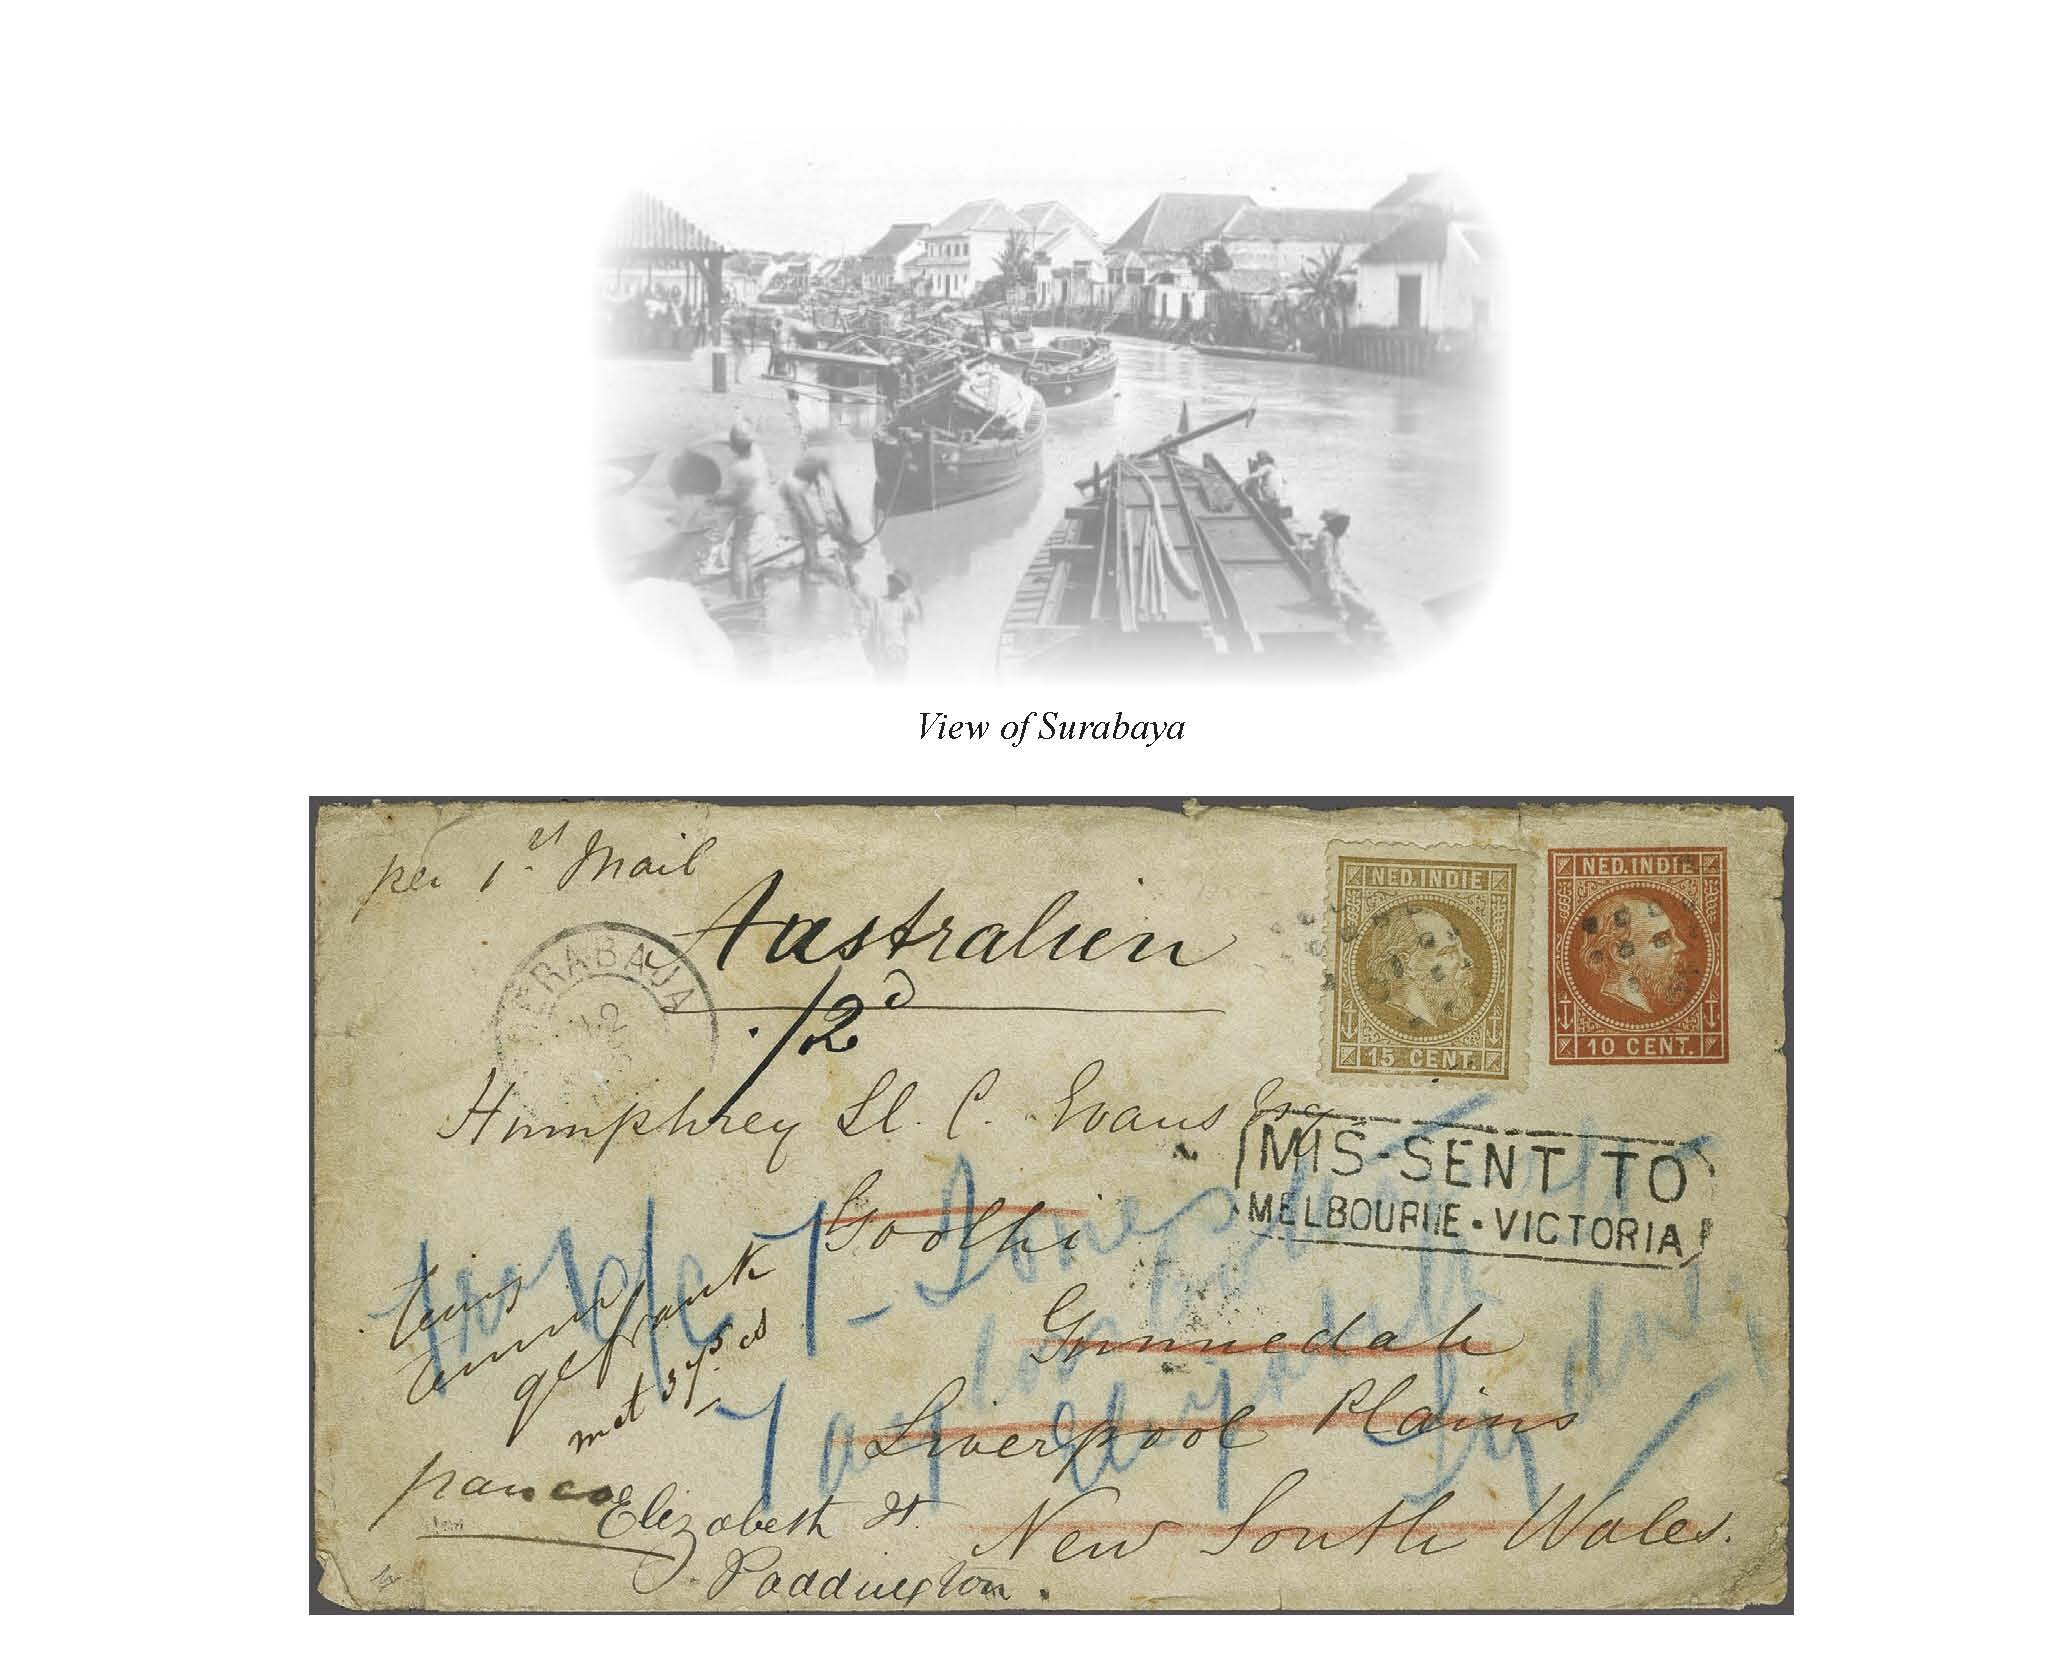 View of Surabaya
per 1st Mail
NED. INDIE
15 CENT.
NED. INDIE
10 CENT.
Australien
SOERABAJA
/2d
Humphrey Ll. C. Evans Esq
MIS-SENT TO
MELBOURNE. VICTORIA
Goolhi
Gunnedah
Liverpool Plains
New South Wales.
gefrank
met 37.5 cs
franco
Elizabeth St
Paddington.